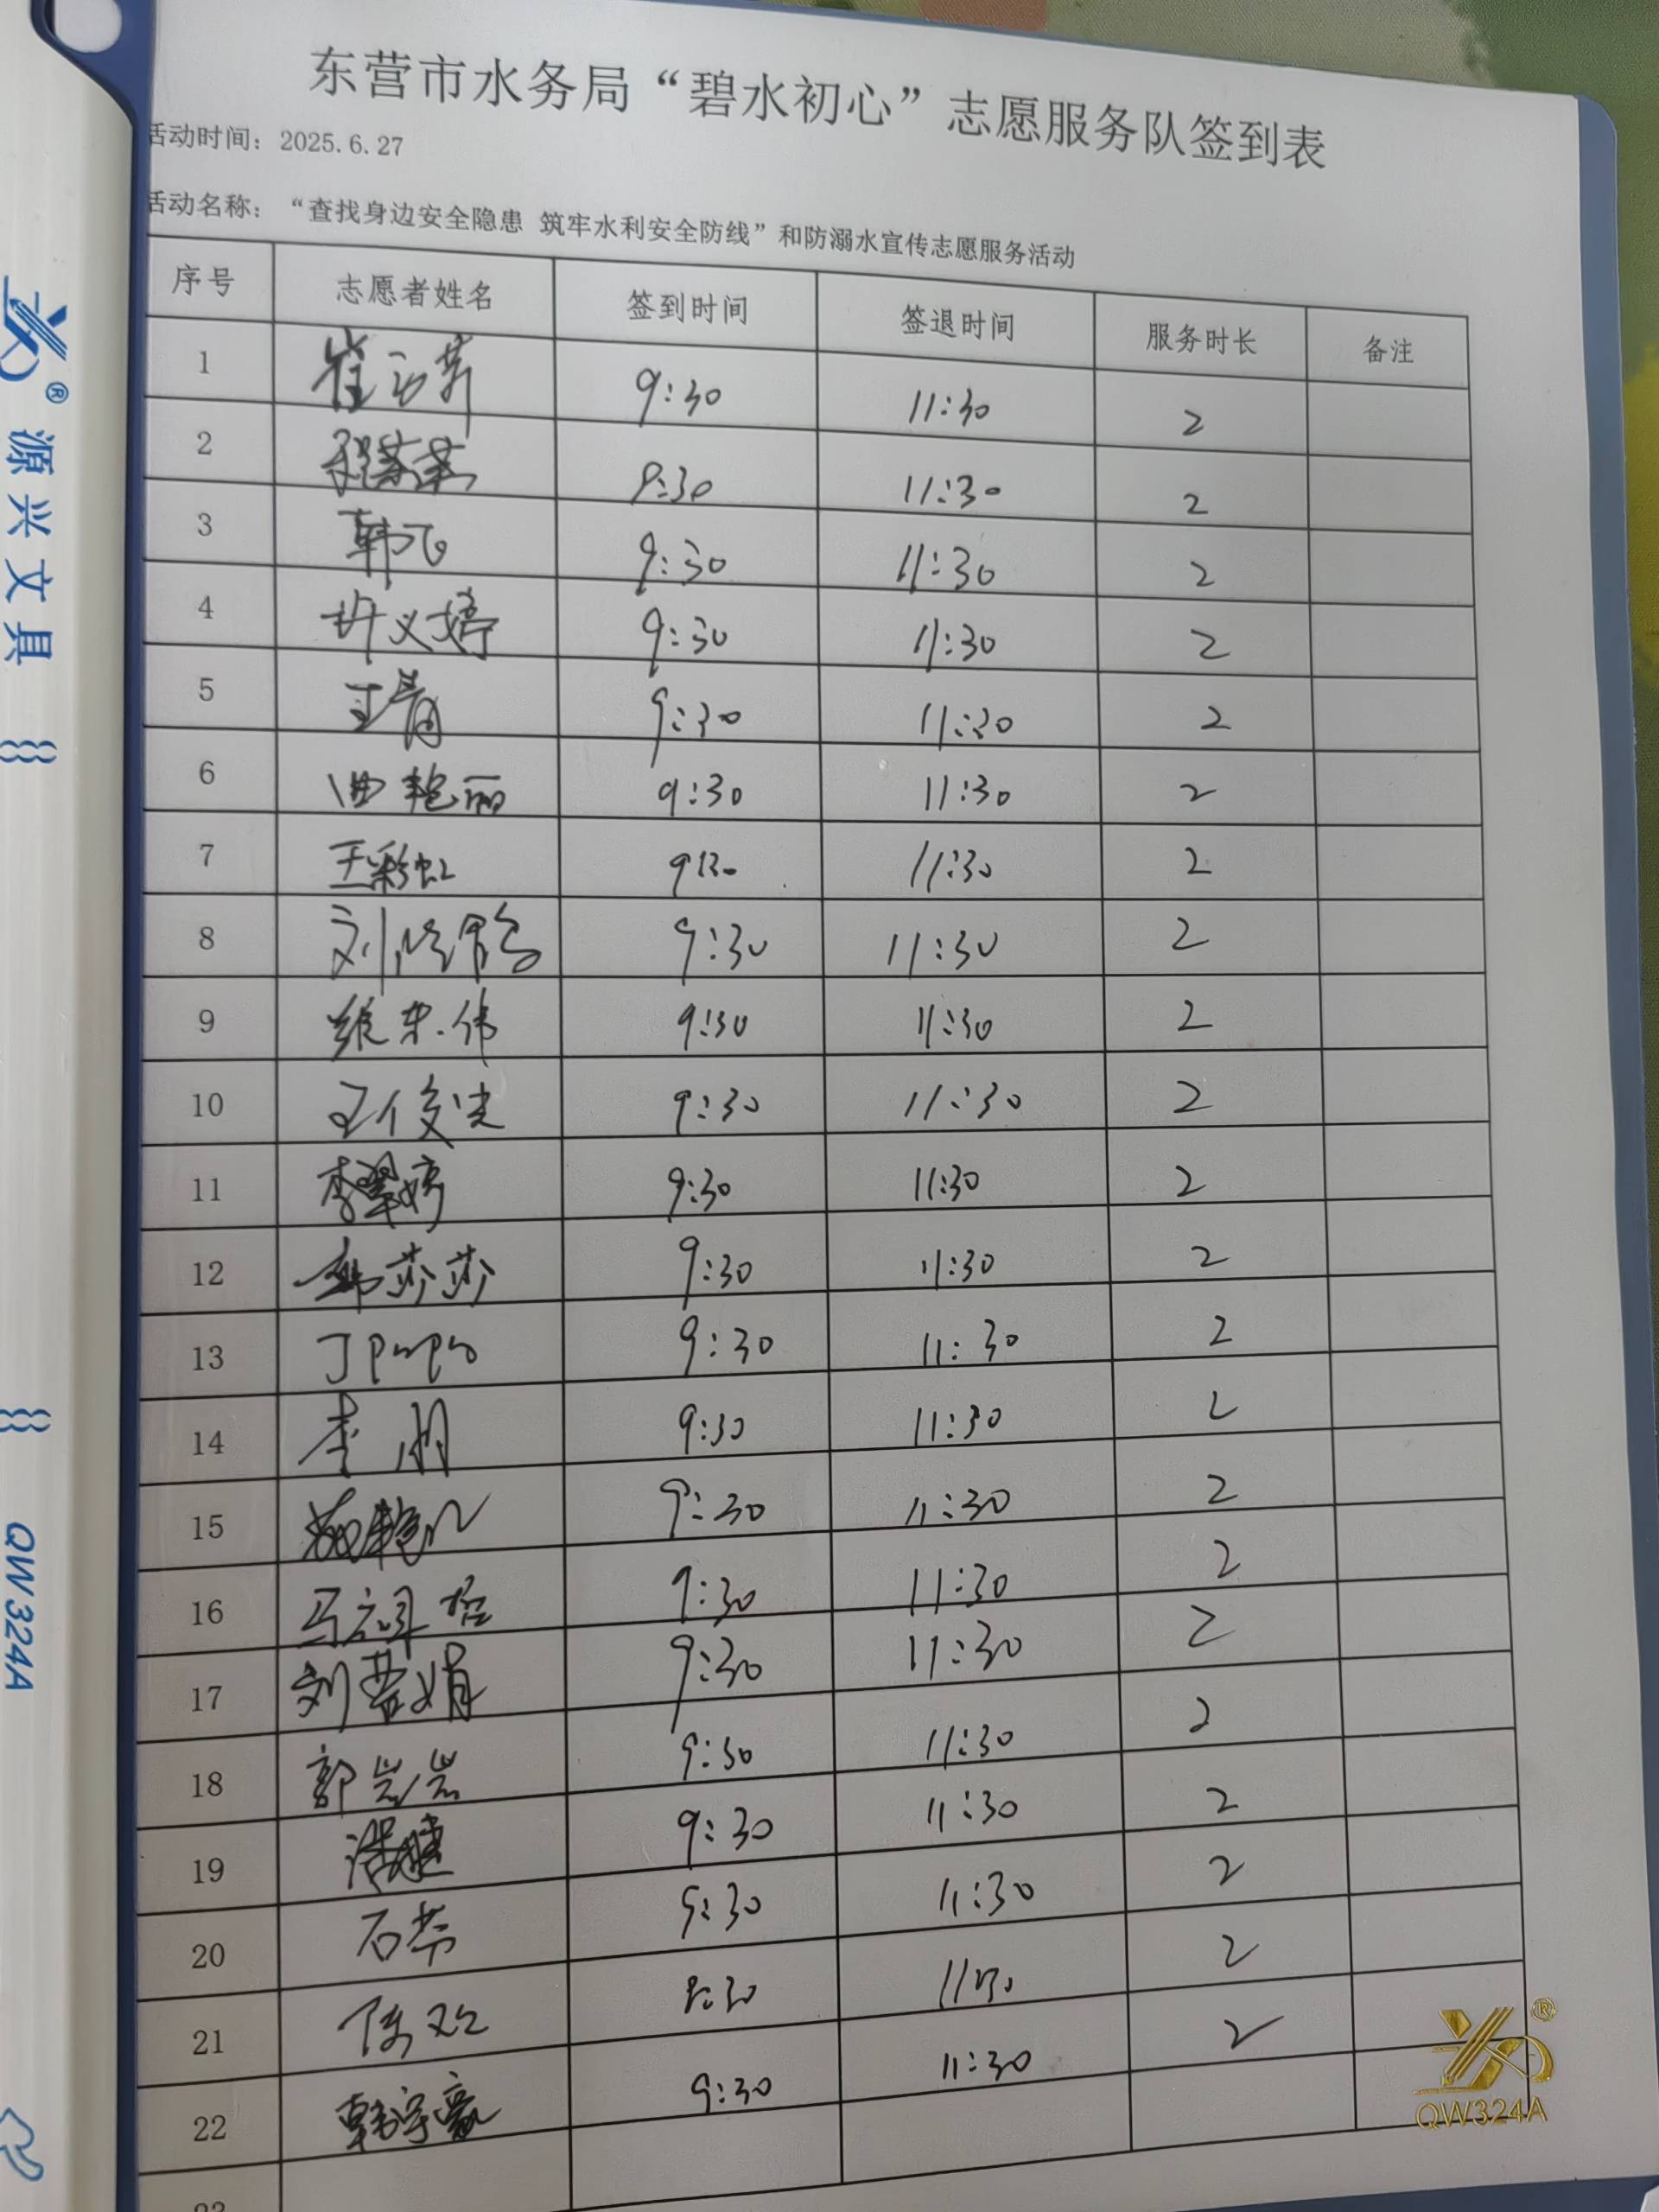 东营市水务局“碧水初心”志愿服务队签到表
活动时间：2025.6.27
活动名称：“查找身边安全隐患 筑牢水利安全防线”和防溺水宣传志愿服务活动
序号 志愿者姓名 签到时间 签退时间 服务时长 备注
1 9:30 11:30 2
2 9:30 11:30 2
3 韩飞 9:30 11:30 2
4 许义婷 9:30 11:30 2
5 王青 9:30 11:30 2
6 曲艳丽 9:30 11:30 2
7 王彩虹 9:30 11:30 2
8 9:30 11:30 2
9 9:30 11:30 2
10 9:30 11:30 2
11 李翠婷 9:30 11:30 2
12 韩莎莎 9:30 11:30 2
13 9:30 11:30 2
14 李 9:30 11:30 2
15 9:30 11:30 2
16 9:30 11:30 2
17 刘 娟 9:30 11:30 2
18 郭岩岩 9:30 11:30 2
19 9:30 11:30 2
20 9:30 11:30 2
21 陈双 11:30 2
22 韩宇豪 9:30 11:30 2
23
源兴文具
QW324A
QW324A